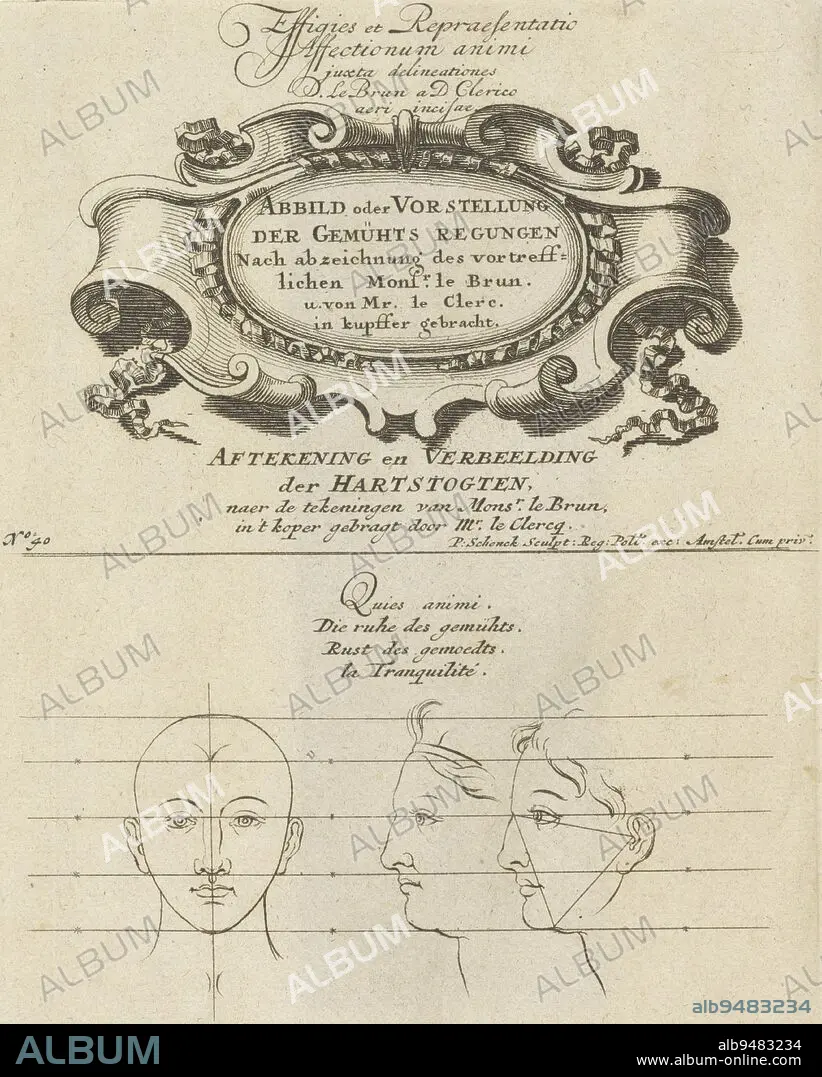 Effigies et Repraesentatio
Affectionum animi
juxta delineationes
D. Le Brun a D Clerico
aeri incisae.
ABBILD oder VORSTELLUNG
DER GEMÜHTS REGUNGEN
Nach abzeichnung des vortreff=
lichen Monsr. le Brun.
u. von Mr. le Clerc.
in kupffer gebracht.
AFTEKENING en VERBEELDING
der HARTSTOGTEN,
naer de tekeningen van Monsr. le Brun,
in't koper gebragt door Mr. le Clercq.
No. 40
P: Schenck Sculpt: Reg: Pol: exc: Amstel. Cum priv:
Quies animi.
Die ruhe des gemühts.
Rust des gemoedts.
la Tranquilité.
alb9483234
ALBUM
alb9483234
www.album-online.com